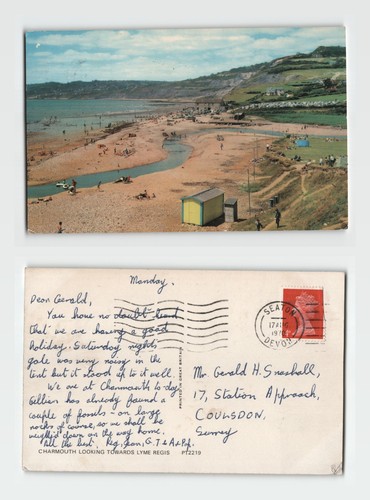 Monday.
Dear Gerald,
You have no doubt heard
that we are having a good
holiday. Saturday nights
gale was very noisy in the
tent but it stood up to it well.
We are at Charmouth to-day
Gillian has already found a
couple of fossils - on large
rocks of course, so we shall be
weighed down on the way home.
All the best. Reg, Jean, G. T. &
CHARMOUTH LOOKING TOWARDS LYME REGIS PT2219
SEATON
17 AUG
1970
DEVON
Mr Gerald H. Snashall,
17, Station Approach,
COULSDON,
Surrey